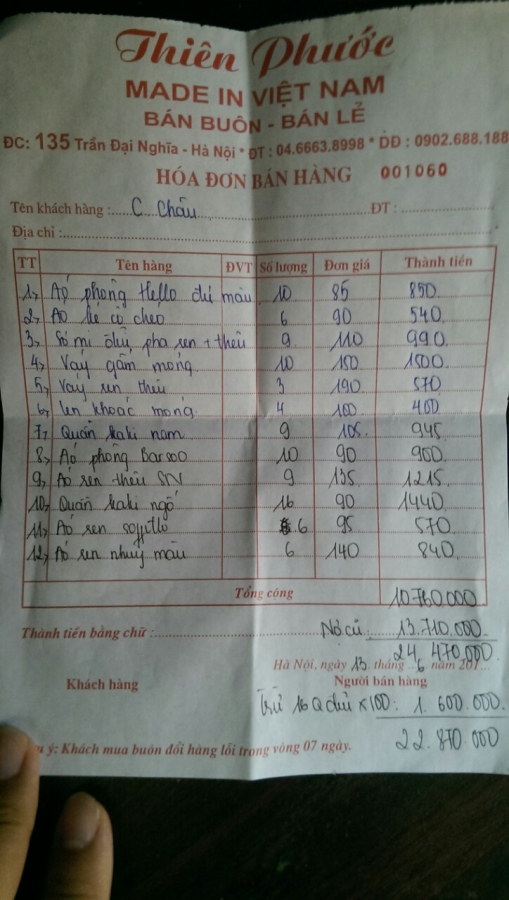 Thiên Phước
MADE IN VIỆT NAM
BÁN BUÔN - BÁN LẺ
ĐC: 135 Trần Đại Nghĩa - Hà Nội * ĐT : 04.6663.8998 * DĐ : 0902.688.188
HÓA ĐƠN BÁN HÀNG 001060
Tên khách hàng : C Châu ĐT :
Địa chỉ :
TT Tên hàng ĐVT Số lượng Đơn giá Thành tiền
1, Áo phông Hello đủ màu 10 85 850
2, Áo hè cổ chéo 6 90 540
3, Sơ mi đũi pha ren + thêu 9 110 990
4, Váy gấm mỏng 10 150 1500
5, Váy ren thêu 3 190 570
6, len khoác mỏng 4 100 400
7, Quần kaki nam 9 105 945
8, Áo phông Baroo 10 90 900
9, Áo ren thêu SN 9 135 1215
10, Quần kaki ngố 16 90 1440
11, Áo ren 6 95 570
12, Áo ren nhuỵ màu 6 140 840
Tổng cộng 10760.000
Thành tiền bằng chữ : Nợ cũ: 13.710.000
24.470.000
Hà Nội, ngày 13 tháng 6 năm 201
Khách hàng Người bán hàng
Trừ 16 Q đũi x100: 1.600.000
22.870.000
ý: Khách mua buôn đổi hàng lỗi trong vòng 07 ngày.